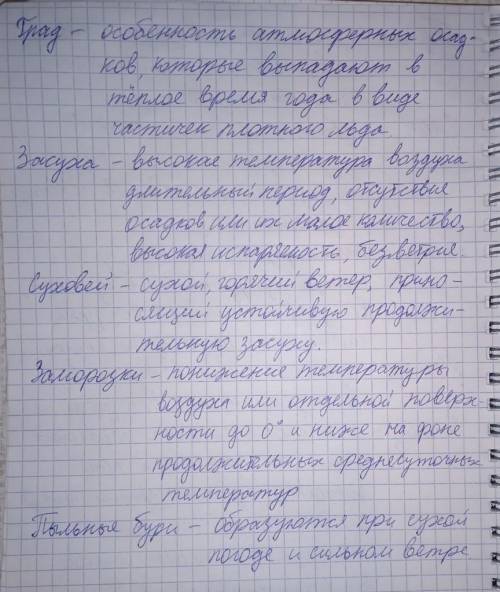 Град – особенность атмосферных осад-
ков, которые выпадают в
тёплое время года в виде
частичек плотного льда.
Засуха – высокая температура воздуха
длительный период, отсутствия
осадков или их малое количество,
высокая испаряемость, безветрие.
Суховей – сухой, горячий ветер, прино-
сящий устойчивую продолжи-
тельную засуху.
Заморозки – понижение температуры
воздуха или отдельной поверх-
ности до 0° и ниже на фоне
продолжительных среднесуточных
температур
Пыльные бури – образуются при сухой
погоде и сильном ветре